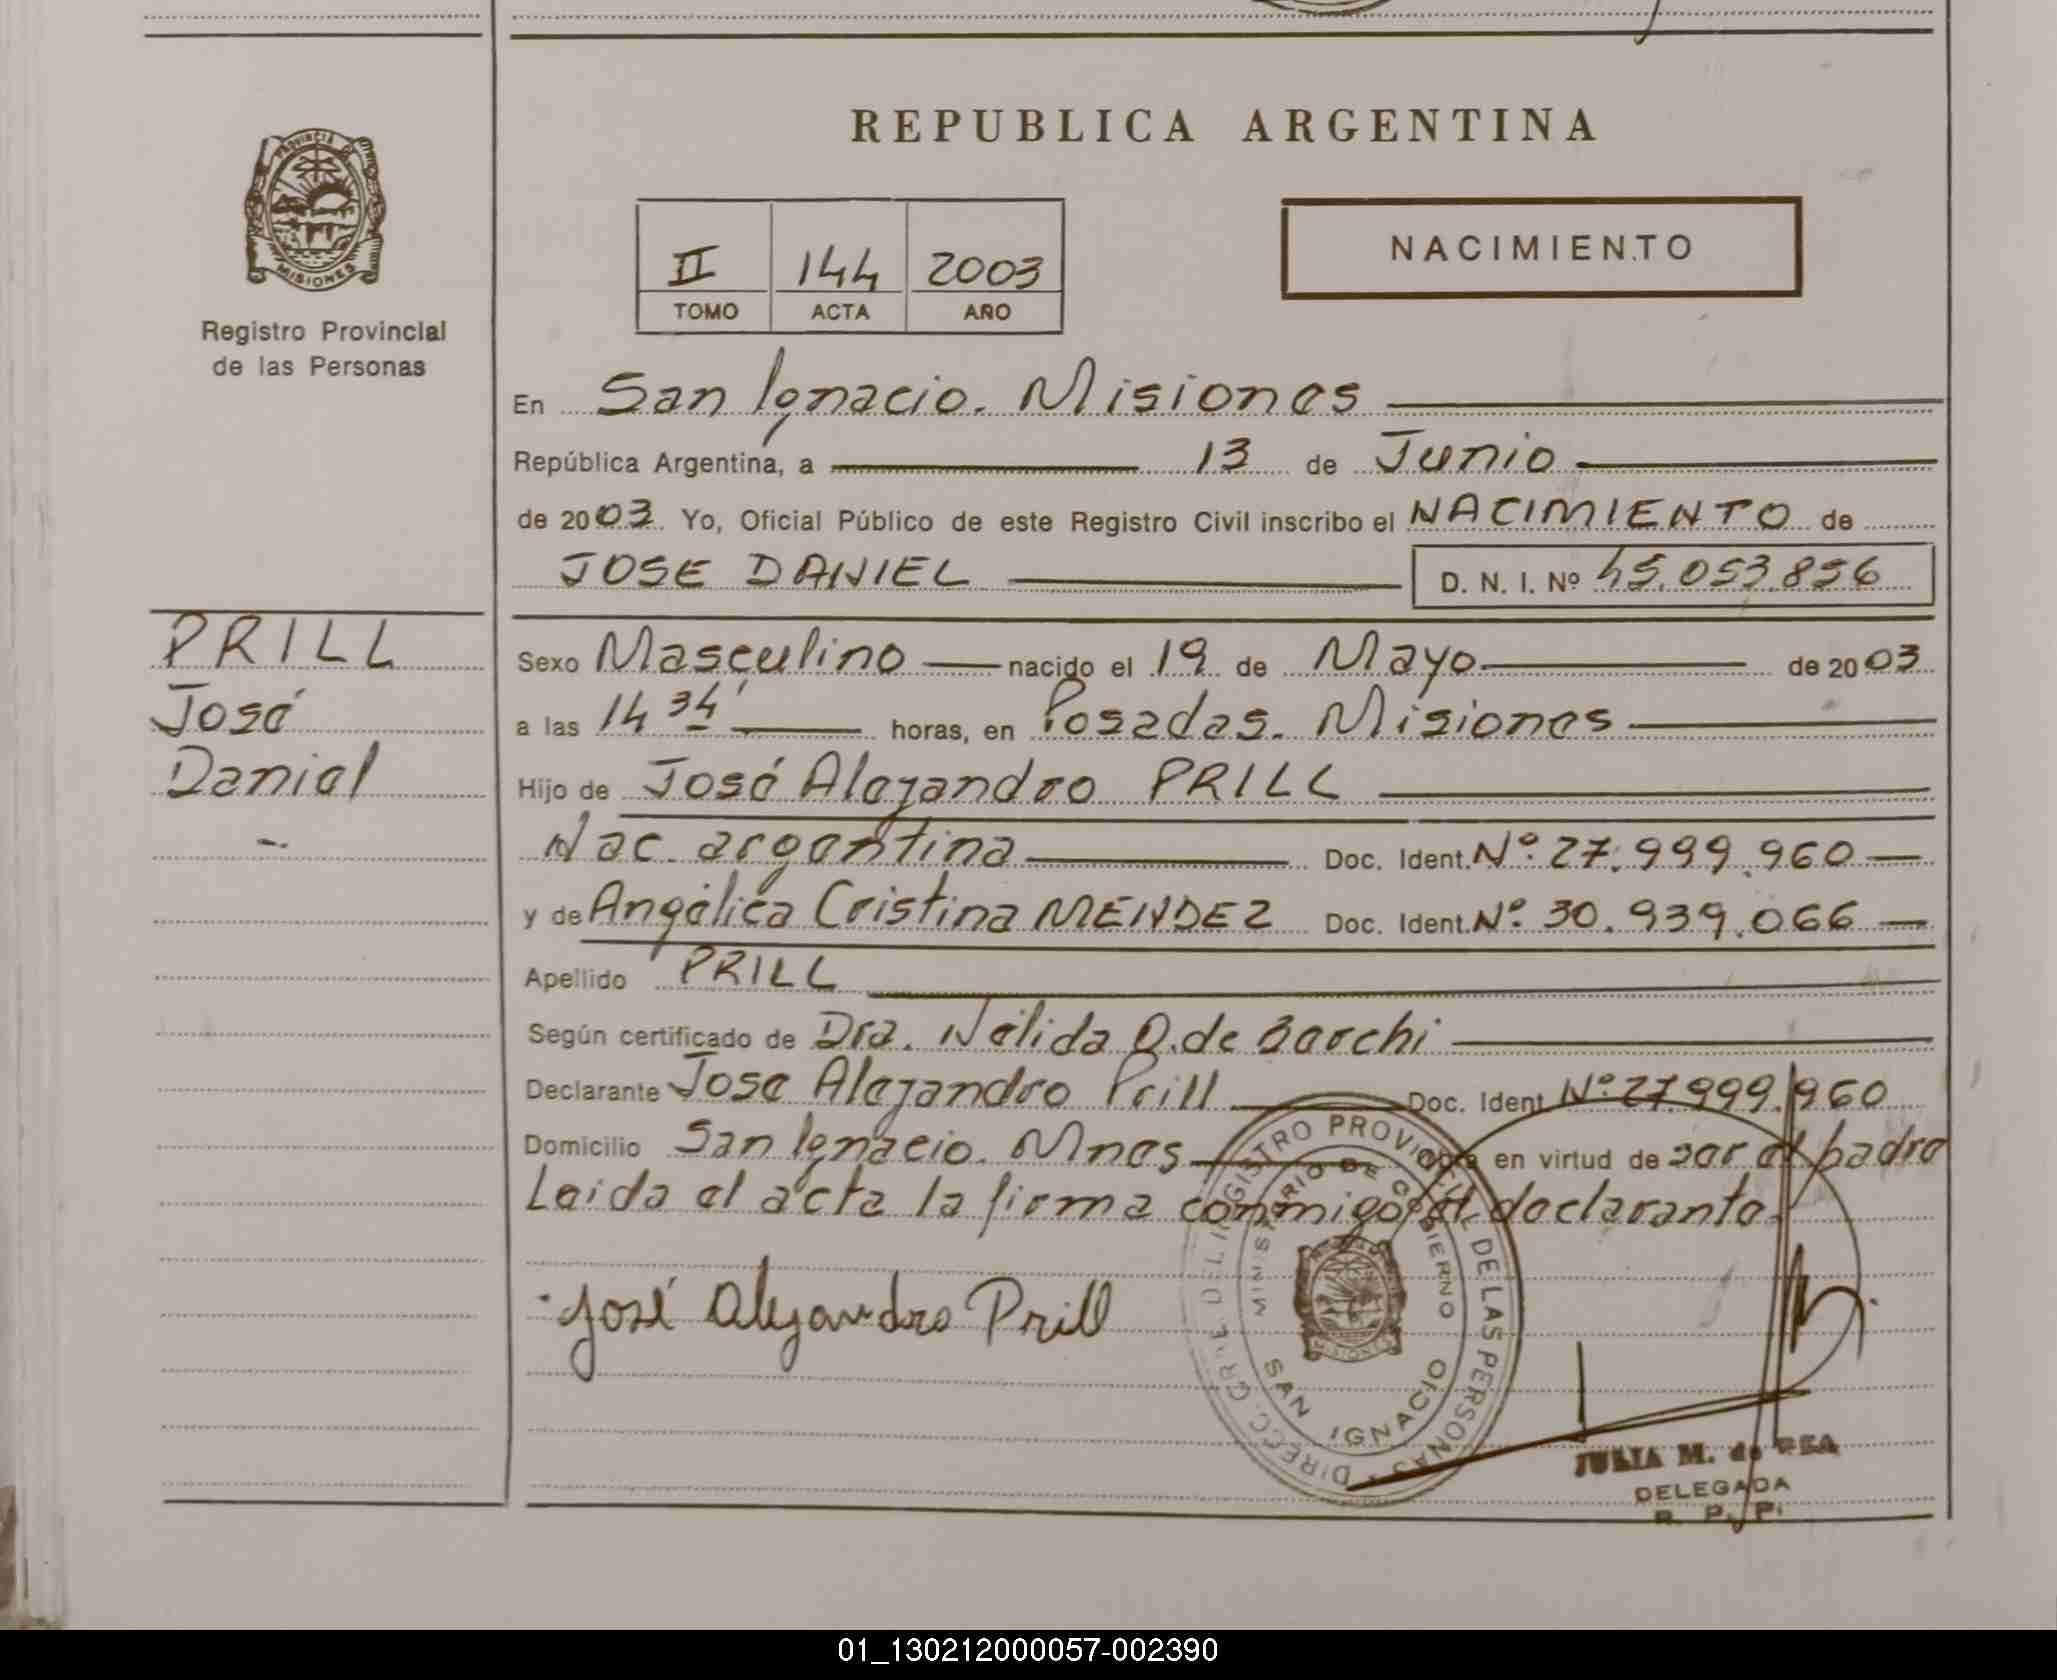 PROVINCIA DE
MISIONES
Registro Provincial
de las Personas
PRILL
José
Daniel
REPUBLICA ARGENTINA
II 144 2003
TOMO ACTA AÑO
NACIMIENTO
En San Ignacio. Misiones
República Argentina, a 13 de Junio
de 2003 Yo, Oficial Público de este Registro Civil inscribo el NACIMIENTO de
JOSE DANIEL D. N. I. Nº 45.053.856
Sexo Masculino nacido el 19 de Mayo de 2003
a las 14 34' horas, en Posadas. Misiones
Hijo de José Alejandro PRILL
Nac. argentina Doc. Ident. Nº 27.999.960
y de Angélica Cristina MENDEZ Doc. Ident. Nº 30.939.066
Apellido PRILL
Según certificado de Dra. Nélida O. de Barchi
Declarante Jose Alejandro Prill Doc. Ident Nº 27.999.960
Domicilio San Ignacio. Mnes en virtud de ser el padre
Leida el acta la firma conmigo el declarante.
José Alejandro Prill
REGISTRO PROVINCIAL DE LAS PERSONAS - DIRECC. GRAL. DEL
MINISTERIO DE GOBIERNO
SAN IGNACIO
JULIA M. de REA
DELEGADA
R. P. P.
01_130212000057-002390